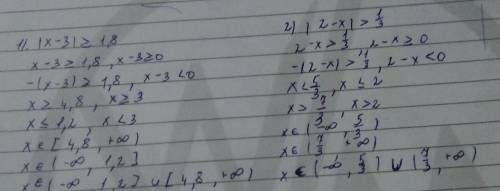 1). |x-3| ≥ 1,8
x-3 ≥ 1,8, x-3 ≥ 0
-(x-3) ≥ 1,8, x-3 < 0
x ≥ 4,8, x ≥ 3
x ≤ 1,2, x < 3
x ∈ [4,8, +∞)
x ∈ (-∞, 1,2]
x ∈ (-∞, 1,2] ∪ [4,8, +∞)
2) |2-x| > 1/3
2-x > 1/3, 2-x ≥ 0
-(2-x) > 1/3, 2-x < 0
x < 5/3, x ≤ 2
x > 7/3, x > 2
x ∈ (-∞, 5/3)
x ∈ (7/3, +∞)
x ∈ (-∞, 5/3) ∪ (7/3, +∞)